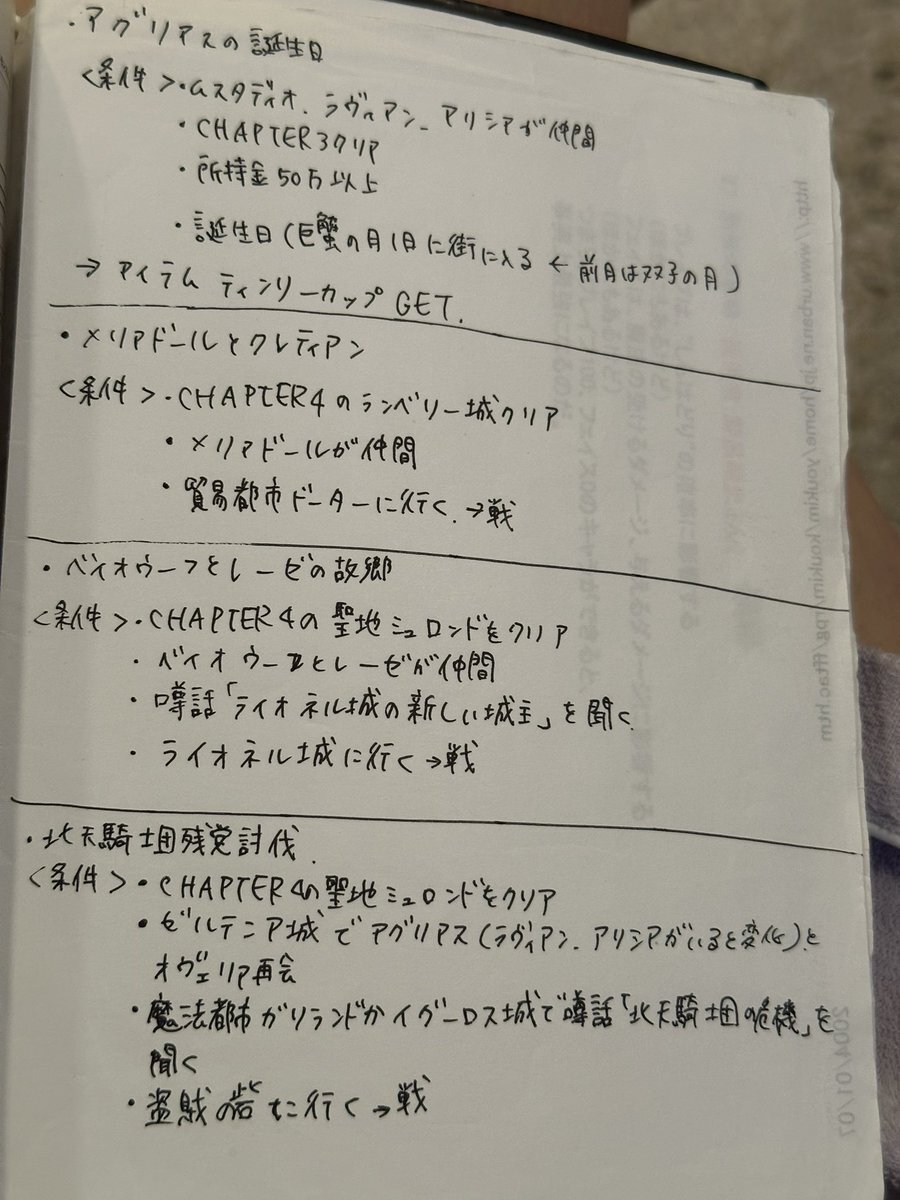 ・アグリアスの誕生日
<条件>・ムスタディオ、ラヴィアン、アリシアが仲間
・CHAPTER3クリア
・所持金50万以上
・誕生日(巨蟹の月1日に街に入る ← 前月は双子の月)
→ アイテム ティンリーカップGET.
・メリアドールとクレティアン
<条件>・CHAPTER4のランベリー城クリア
・メリアドールが仲間
・貿易都市ドーターに行く.→戦
・ベイオウーフとレーゼの故郷
<条件>・CHAPTER4の聖地ミュロンドをクリア
・ベイオウーフとレーゼが仲間
・噂話「ライオネル城の新しい城主」を聞く
・ライオネル城に行く→戦
・北天騎士団残党討伐.
<条件>・CHAPTER4の聖地ミュロンドをクリア
・ゼルテニア城でアグリアス(ラヴィアン、アリシアがいると変化)と
オヴェリア再会
・魔法都市ガリランドかイグーロス城で噂話「北天騎士団の危機」を
聞く
・盗賊の砦に行く→戦
http://www.urban.ne.jp/home/youkim/koukim/rpg/fftac.htm
2004/01/07